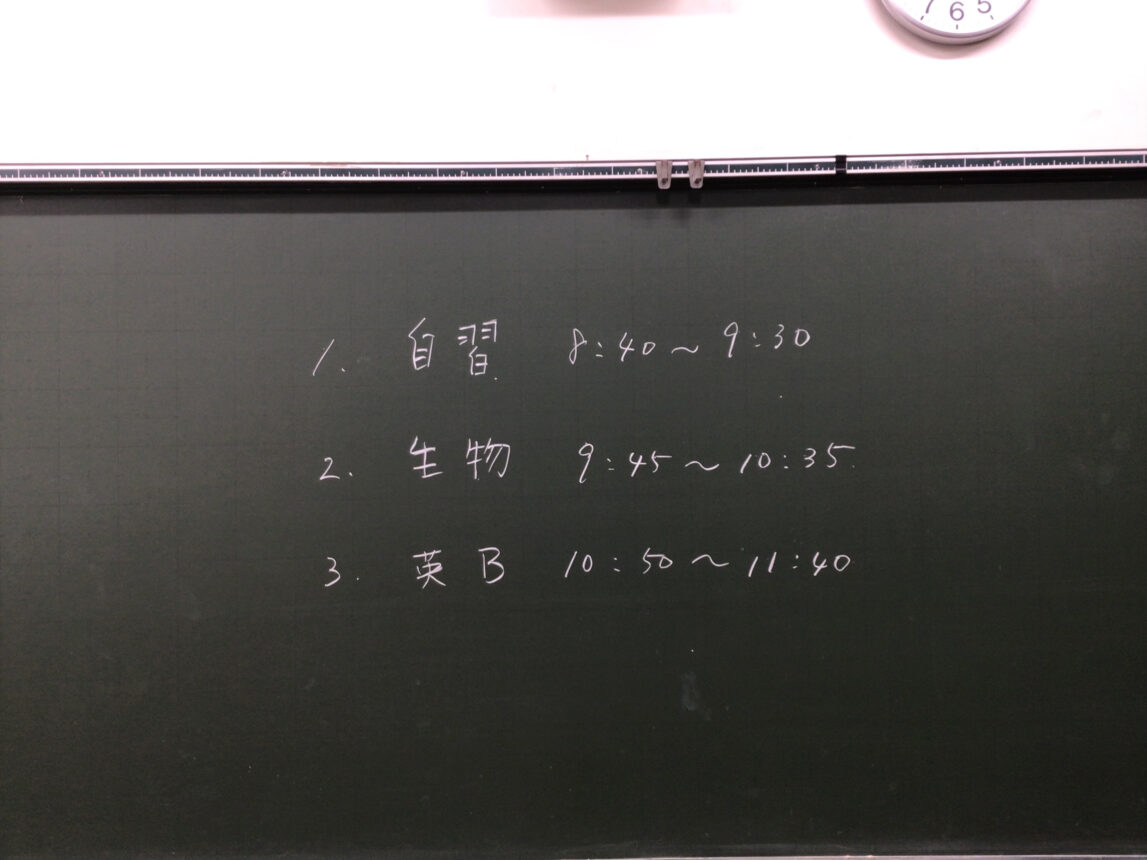 7 6 5
1. 自習 8:40～9:30
2. 生物 9:45～10:35
3. 英B 10:50～11:40